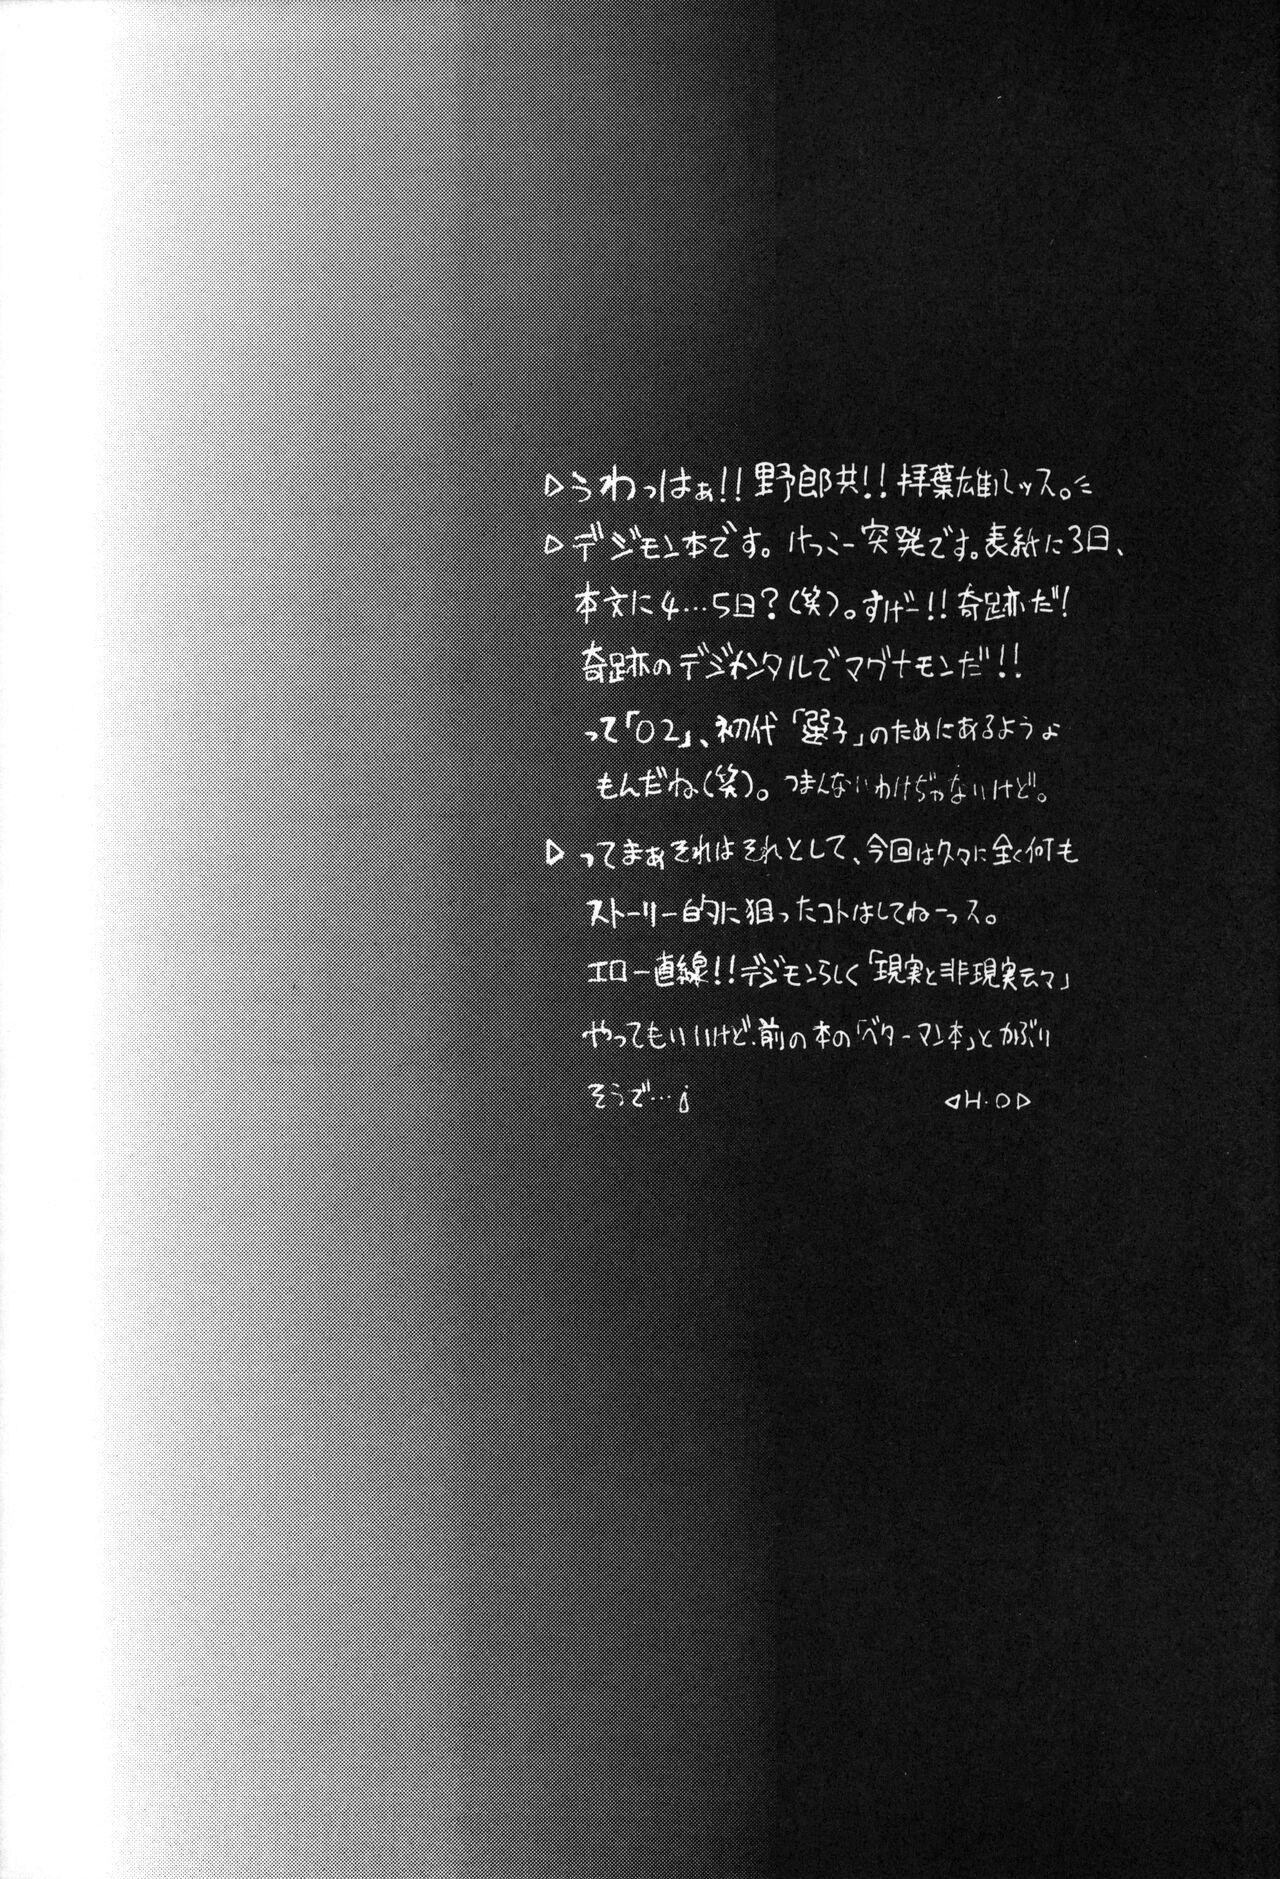 ▷うわっはぁ!!野郎共!!拝葉雄ルッス。
▷デジモン本です。けっこー突発です。表紙に3日、
本文に4…5日?(笑)。すげー!!奇跡だ!
奇跡のデジメンタルでマグナモンだ!!
って「02」、初代「選子」のためにあるようょ
もんだね(笑)。つまんないわけぢゃないけど。
▷ってまぁそれはそれとして、今回は久々に全く何も
ストーリー的に狙ったコトはしてねーっス。
エロ一直線!!デジモンらしく「現実と非現実云々」
やってもいいけど、前の本の「ベターマン本」とかぶり
そうで…
◁H.O▷